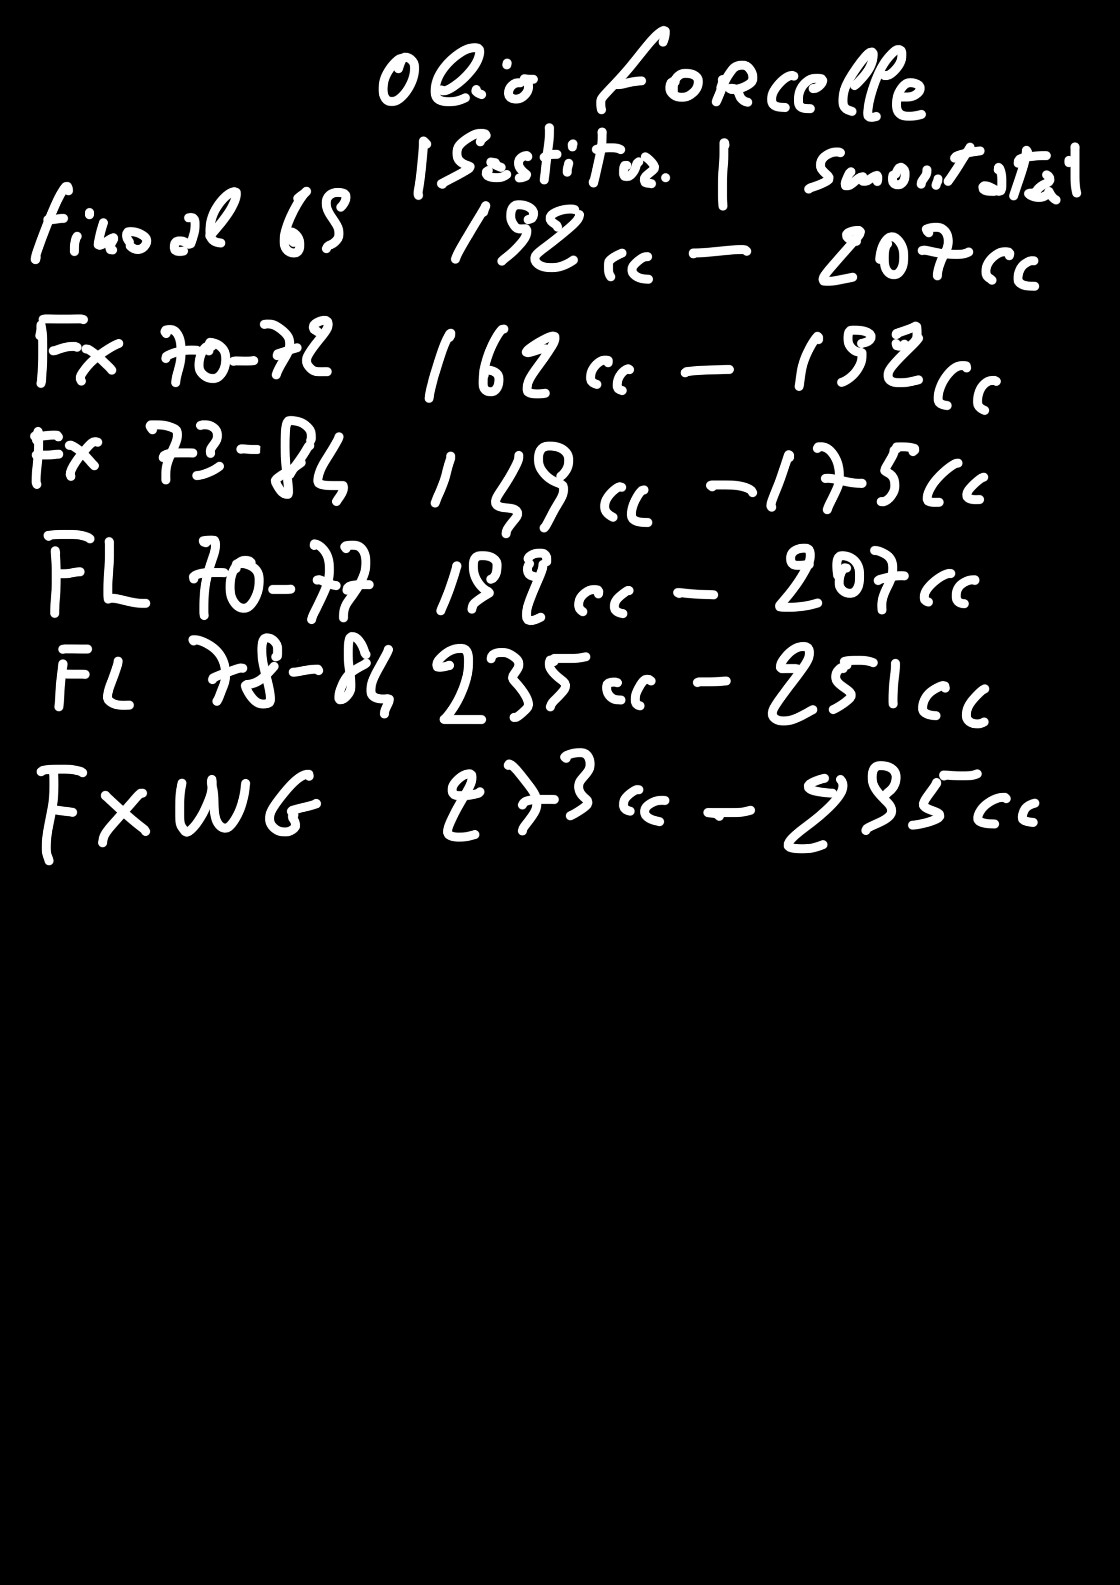 Olio Forcelle
| Sostituz. | Smontata |
Fino al 69 192 cc - 207 cc
Fx 70-72 162 cc - 192 cc
Fx 73-84 149 cc - 175 cc
FL 70-77 192 cc - 207 cc
FL 78-84 235 cc - 251 cc
FxWG 273 cc - 295 cc